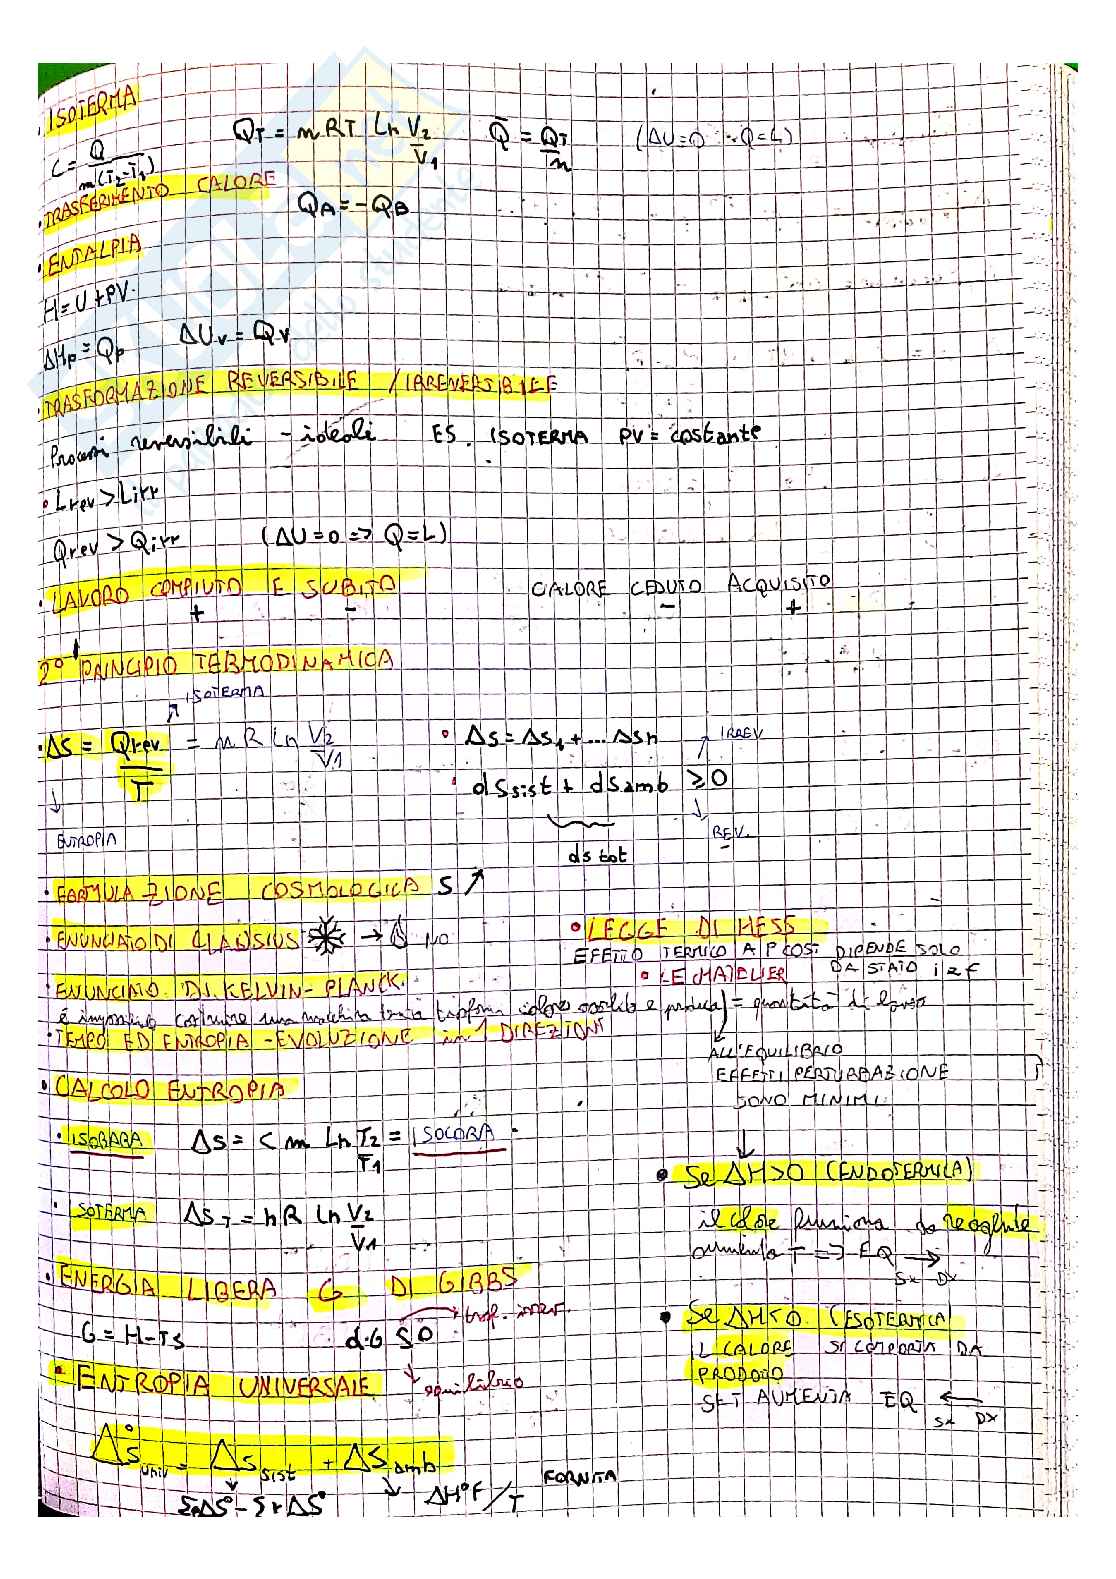 • ISOTERMA
Q_T = m RT Ln V2/V1   Q̄ = Q_T/Tm   (ΔU=0 → Q=L)
C = Q/m(T2-T1)
• TRASFERIMENTO CALORE
QA = -QB
• ENTALPIA
H = U + PV
ΔHp = Qp   ΔUv = Qv
• TRASFORMAZIONE REVERSIBILE / IRREVERSIBILE
Processi reversibili - ideali   ES. ISOTERMA PV = costante
• Lrev > Lirr
Qrev > Qirr   (ΔU = 0 => Q = L)
• LAVORO COMPIUTO E SUBITO   CALORE CEDUTO ACQUISITO
+ -   - +
2° PRINCIPIO TERMODINAMICA
ISOTERMA
• ΔS = Qrev/T = m R Ln V2/V1   • ΔS = ΔS1 + ... ΔSn   IRREV
• dSsist + dSamb ≥ 0
ENTROPIA   REV.
ds tot
• FORMULAZIONE COSMOLOGICA S ↗
• ENUNCIATO DI CLAUSIUS ❄ → NO   • LEGGE DI HESS
EFFETTO TERMICO A P COST. DIPENDE SOLO
DA STATO i e f
• ENUNCIATO DI KELVIN-PLANCK.   • LE CHATELIER
è costruire una macchina calore e = quantità di lavoro
• TEMPO ED ENTROPIA - EVOLUZIONE in 1 DIREZIONE
ALL'EQUILIBRIO
EFFETTI PERTURBAZIONE
SONO MINIMI
• CALCOLO ENTROPIA
• ISOBARA   ΔS = C m Ln T2/T1 = ISOCORA
• Se ΔH>0 (ENDOTERMICA)
• ISOTERMA   ΔS_T = nR Ln V2/V1
il calore funziona da reagente
aumento T => EQ →
Sx Dx
• ENERGIA LIBERA G DI GIBBS
trasf. irrev.
G = H-TS   dG ≤ 0
• Se ΔH<0 (ESOTERMICA)
IL CALORE SI COMPORTA DA
PRODOTTO
SE T AUMENTA EQ ←
Sx Dx
• ENTROPIA UNIVERSALE   equilibrio
ΔS°univ = ΔS sist + ΔS amb
FORNITA
ΣpΔS° - ΣrΔS°   ΔH°F/T